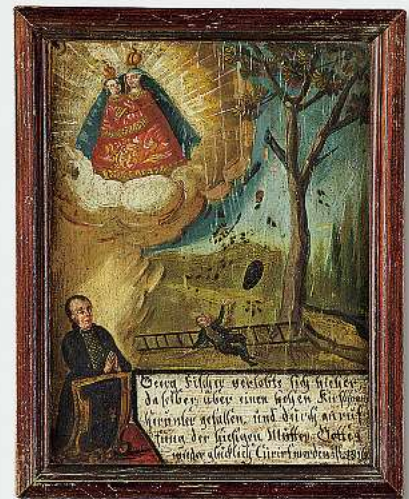 Georg Fischer verlobte sich hieher
da selber über einen hohen Kirschbaum
herunter gefallen, und durch anruf=
fung der hiesigen Mutter Gottes
wieder glücklich Curirt worden ist.